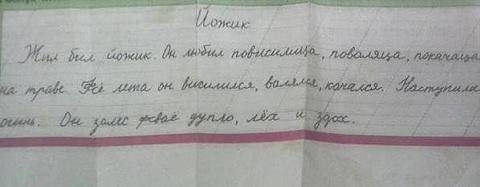 Йожик
Жил был йожик. Он любил повисилица, поваляца, покачаца
на траве. Fсё лета он висилился, валялся, качался. Наступила
осинь. Он залес фсваё дупло, лёх и здох.